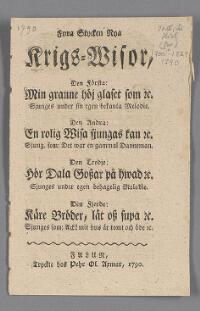 1790
Fyra Stycken Nya
Krigs-Wisor,
Den Första:
Min granne höj glaset som ꝛc.
Sjunges under sin egen bekanta Melodie.
Den Andra:
En rolig Wisa sjungas kan ꝛc.
Sjung. som: Det war en gammal Danneman.
Den Tredje:
Hör Dala Gossar på hwad ꝛc.
Sjunges under egen behagelig Melodie.
Den Fjerde:
Käre Bröder, låt oss supa ꝛc.
Sjunges som: Ack! mit hus är tomt och öde ꝛc.
FALUN,
Tryckte hos Pehr Ol. Axmar, 1790.
1790